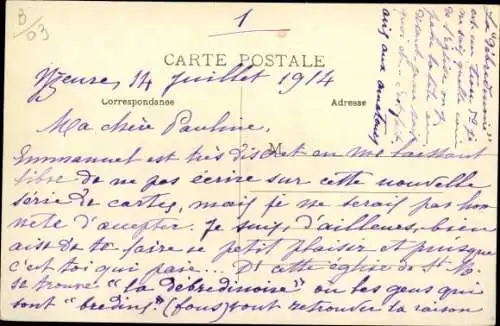 B/03
1
CARTE POSTALE
Yzeure, 14 Juillet 1914
Correspondance
Adresse
M
Ma chère Pauline,
Emmanuel est très discret en me laissant
libre de ne pas écrire sur cette nouvelle
série de cartes, mais je ne serais pas hon
nete d'accepter. Je suis, d'ailleurs, bien
aise de te faire ce petit plaisir et puisque
c'est toi qui paie... Dt cette église de St M.
se trouve "la debredinoire" ou les gens qui
sont "bredins" (fous) vont retrouver la raison
La "Debredinoire"
est un
je
ne sais quelle
de l'église on
la tête
avis aux amateurs